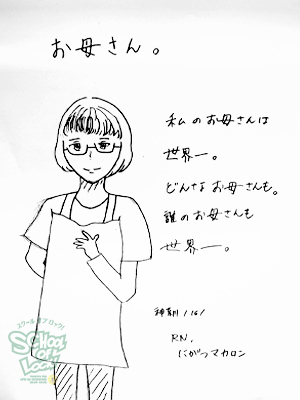 お母さん。
私のお母さんは
世界一。
どんなお母さんも。
誰のお母さんも
世界一。
神奈川 / 16 /
RN.
にがつマカロン
スクール オブ ロック!
SCHOOL
OF
LOCK!